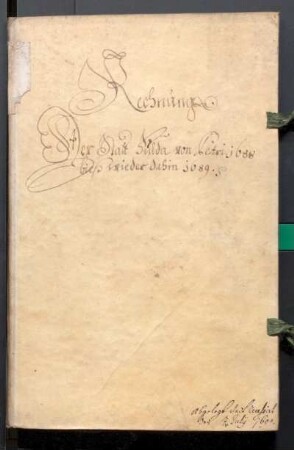 Rechnung
Der Statt Nidda von Petri 1688
biß wieder dahin 1689.
Abgelegt
den July